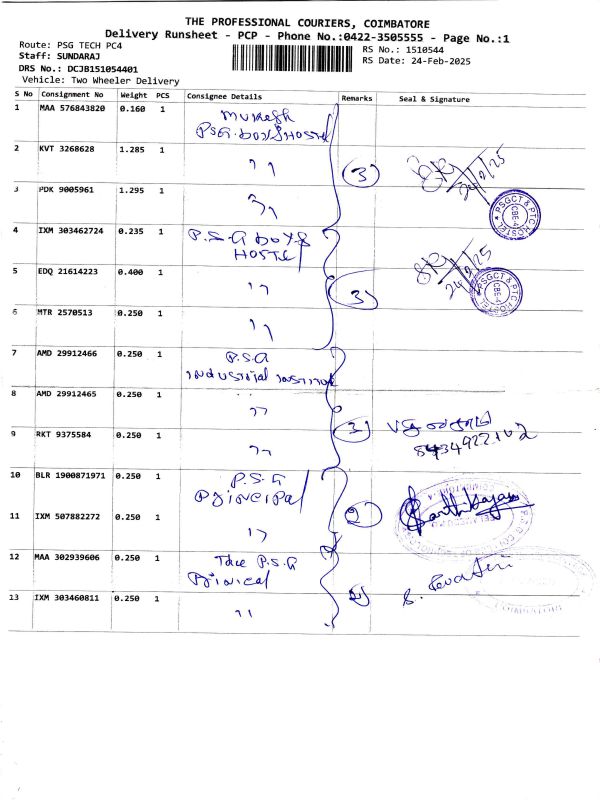 THE PROFESSIONAL COURIERS, COIMBATORE
Delivery Runsheet - PCP - Phone No.:0422-3505555 - Page No.:1
Route: PSG TECH PC4
RS No.: 1510544
Staff: SUNDARAJ
RS Date: 24-Feb-2025
DRS No.: DCJB151054401
Vehicle: Two Wheeler Delivery
S No Consignment No Weight PCS Consignee Details Remarks Seal & Signature
1 MAA 576843820 0.160 1 Mukesh
PSG. boys Hostel
2 KVT 3268628 1.285 1 11 (3) 24/2/25
3 PDK 9005961 1.295 1 11
PSGCT & PTC HOSTEL CBE-4
4 IXM 303462724 0.235 1 P.S.G boys
Hostel
5 EDQ 21614223 0.400 1 11 (3) 24/2/25
PSGCT & PTC HOSTEL CBE-4
6 MTR 2570513 0.250 1 11
7 AMD 29912466 0.250 1 P.S.G
industrial institute
8 AMD 29912465 0.250 1 11
9 RKT 9375584 0.250 1 11 (3)
10 BLR 1900871971 0.250 1 P.S.G
Principal
11 IXM 507882272 0.250 1 11 (2)
12 MAA 302939606 0.250 1 The P.S.G
13 IXM 303460811 0.250 1 11 (2)